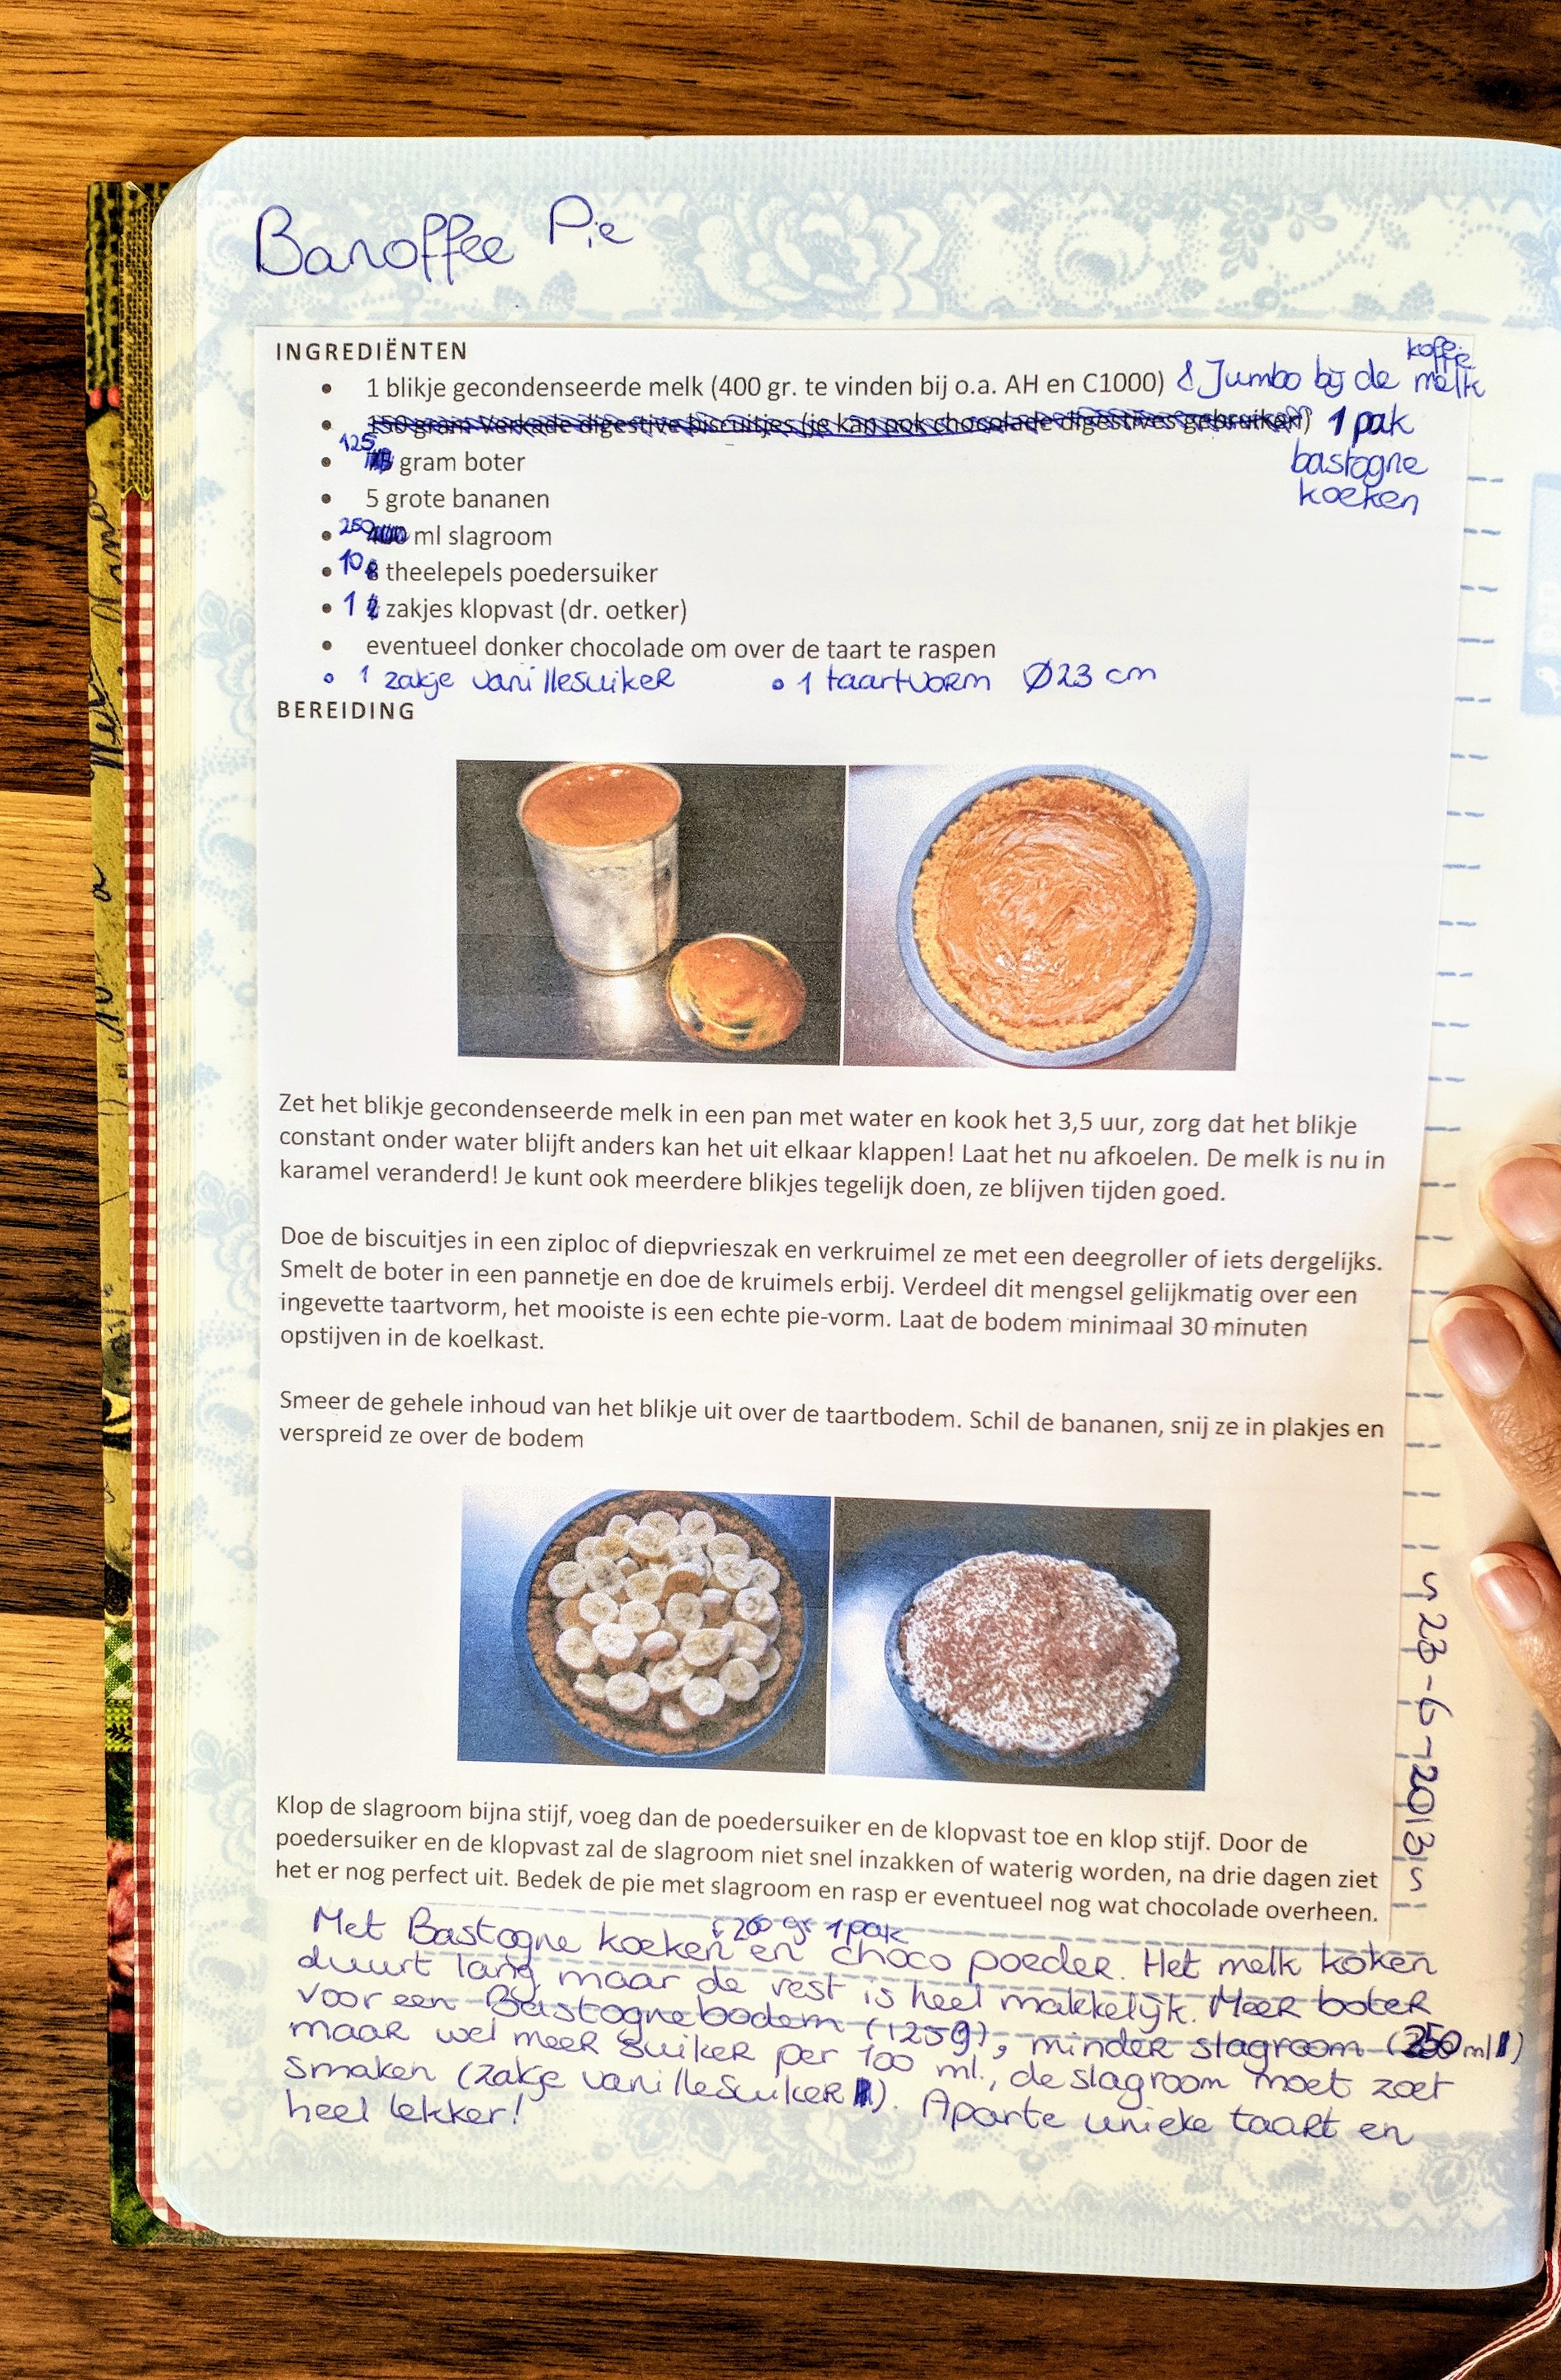 Banoffee Pie
INGREDIËNTEN
koffie
• 1 blikje gecondenseerde melk (400 gr. te vinden bij o.a. AH en C1000) & Jumbo bij de melk
• 150 gram Verkade digestive biscuitjes (je kan ook chocolade digestives gebruiken) 1 pak
bastogne
koeken
• 125 gram boter
• 5 grote bananen
• 250 ml slagroom
• 10 theelepels poedersuiker
• 1 zakjes klopvast (dr. oetker)
• eventueel donker chocolade om over de taart te raspen
• 1 zakje vanillesuiker • 1 taartvorm Ø23 cm
BEREIDING
Zet het blikje gecondenseerde melk in een pan met water en kook het 3,5 uur, zorg dat het blikje
constant onder water blijft anders kan het uit elkaar klappen! Laat het nu afkoelen. De melk is nu in
karamel veranderd! Je kunt ook meerdere blikjes tegelijk doen, ze blijven tijden goed.
Doe de biscuitjes in een ziploc of diepvrieszak en verkruimel ze met een deegroller of iets dergelijks.
Smelt de boter in een pannetje en doe de kruimels erbij. Verdeel dit mengsel gelijkmatig over een
ingevette taartvorm, het mooiste is een echte pie-vorm. Laat de bodem minimaal 30 minuten
opstijven in de koelkast.
Smeer de gehele inhoud van het blikje uit over de taartbodem. Schil de bananen, snij ze in plakjes en
verspreid ze over de bodem
Klop de slagroom bijna stijf, voeg dan de poedersuiker en de klopvast toe en klop stijf. Door de
poedersuiker en de klopvast zal de slagroom niet snel inzakken of waterig worden, na drie dagen ziet
het er nog perfect uit. Bedek de pie met slagroom en rasp er eventueel nog wat chocolade overheen.
23-6-2013
200 gr 1 pak
Met Bastogne koeken en choco poeder. Het melk koken
duurt lang maar de rest is heel makkelijk. Meer boter
voor een Bastognebodem (125g), minder slagroom (250 ml)
maar wel meer suiker per 100 ml., de slagroom moet zoet
smaken (zakje vanillesuiker). Aparte unieke taart en
heel lekker!